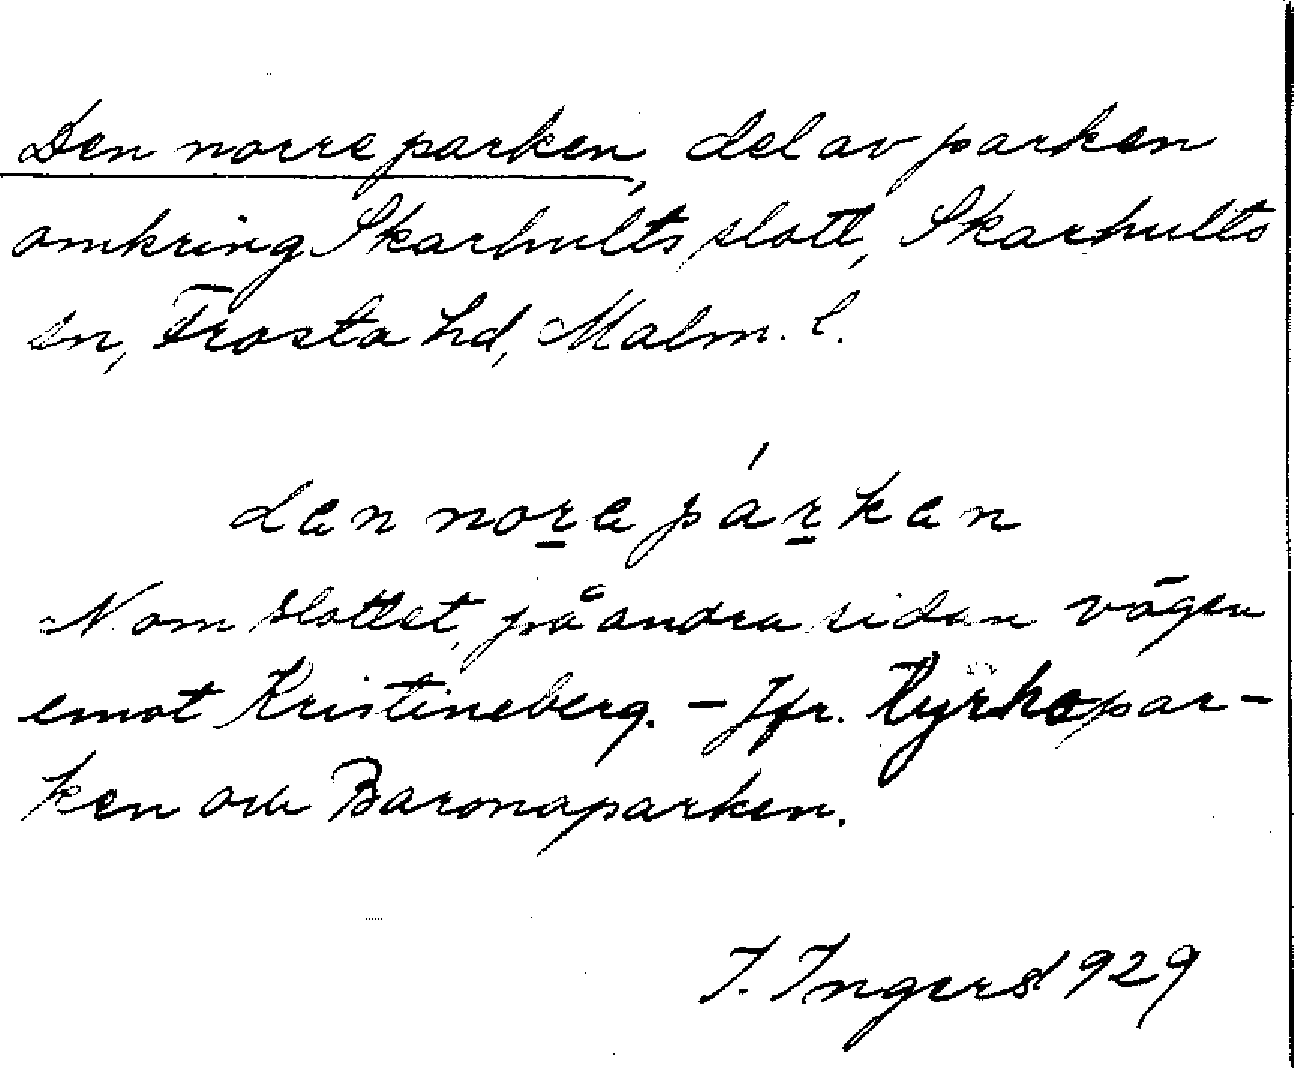 Den norre parken, del av parken
omkring Skarhults slott, Skarhults
sn, Frosta hd, Malm. l.
den nore párken
N om slottet, på andra sidan vägen
emot Kristineberg. - Jfr. Kyrkopar-
ken och Baronaparken.
I. Ingers 1929